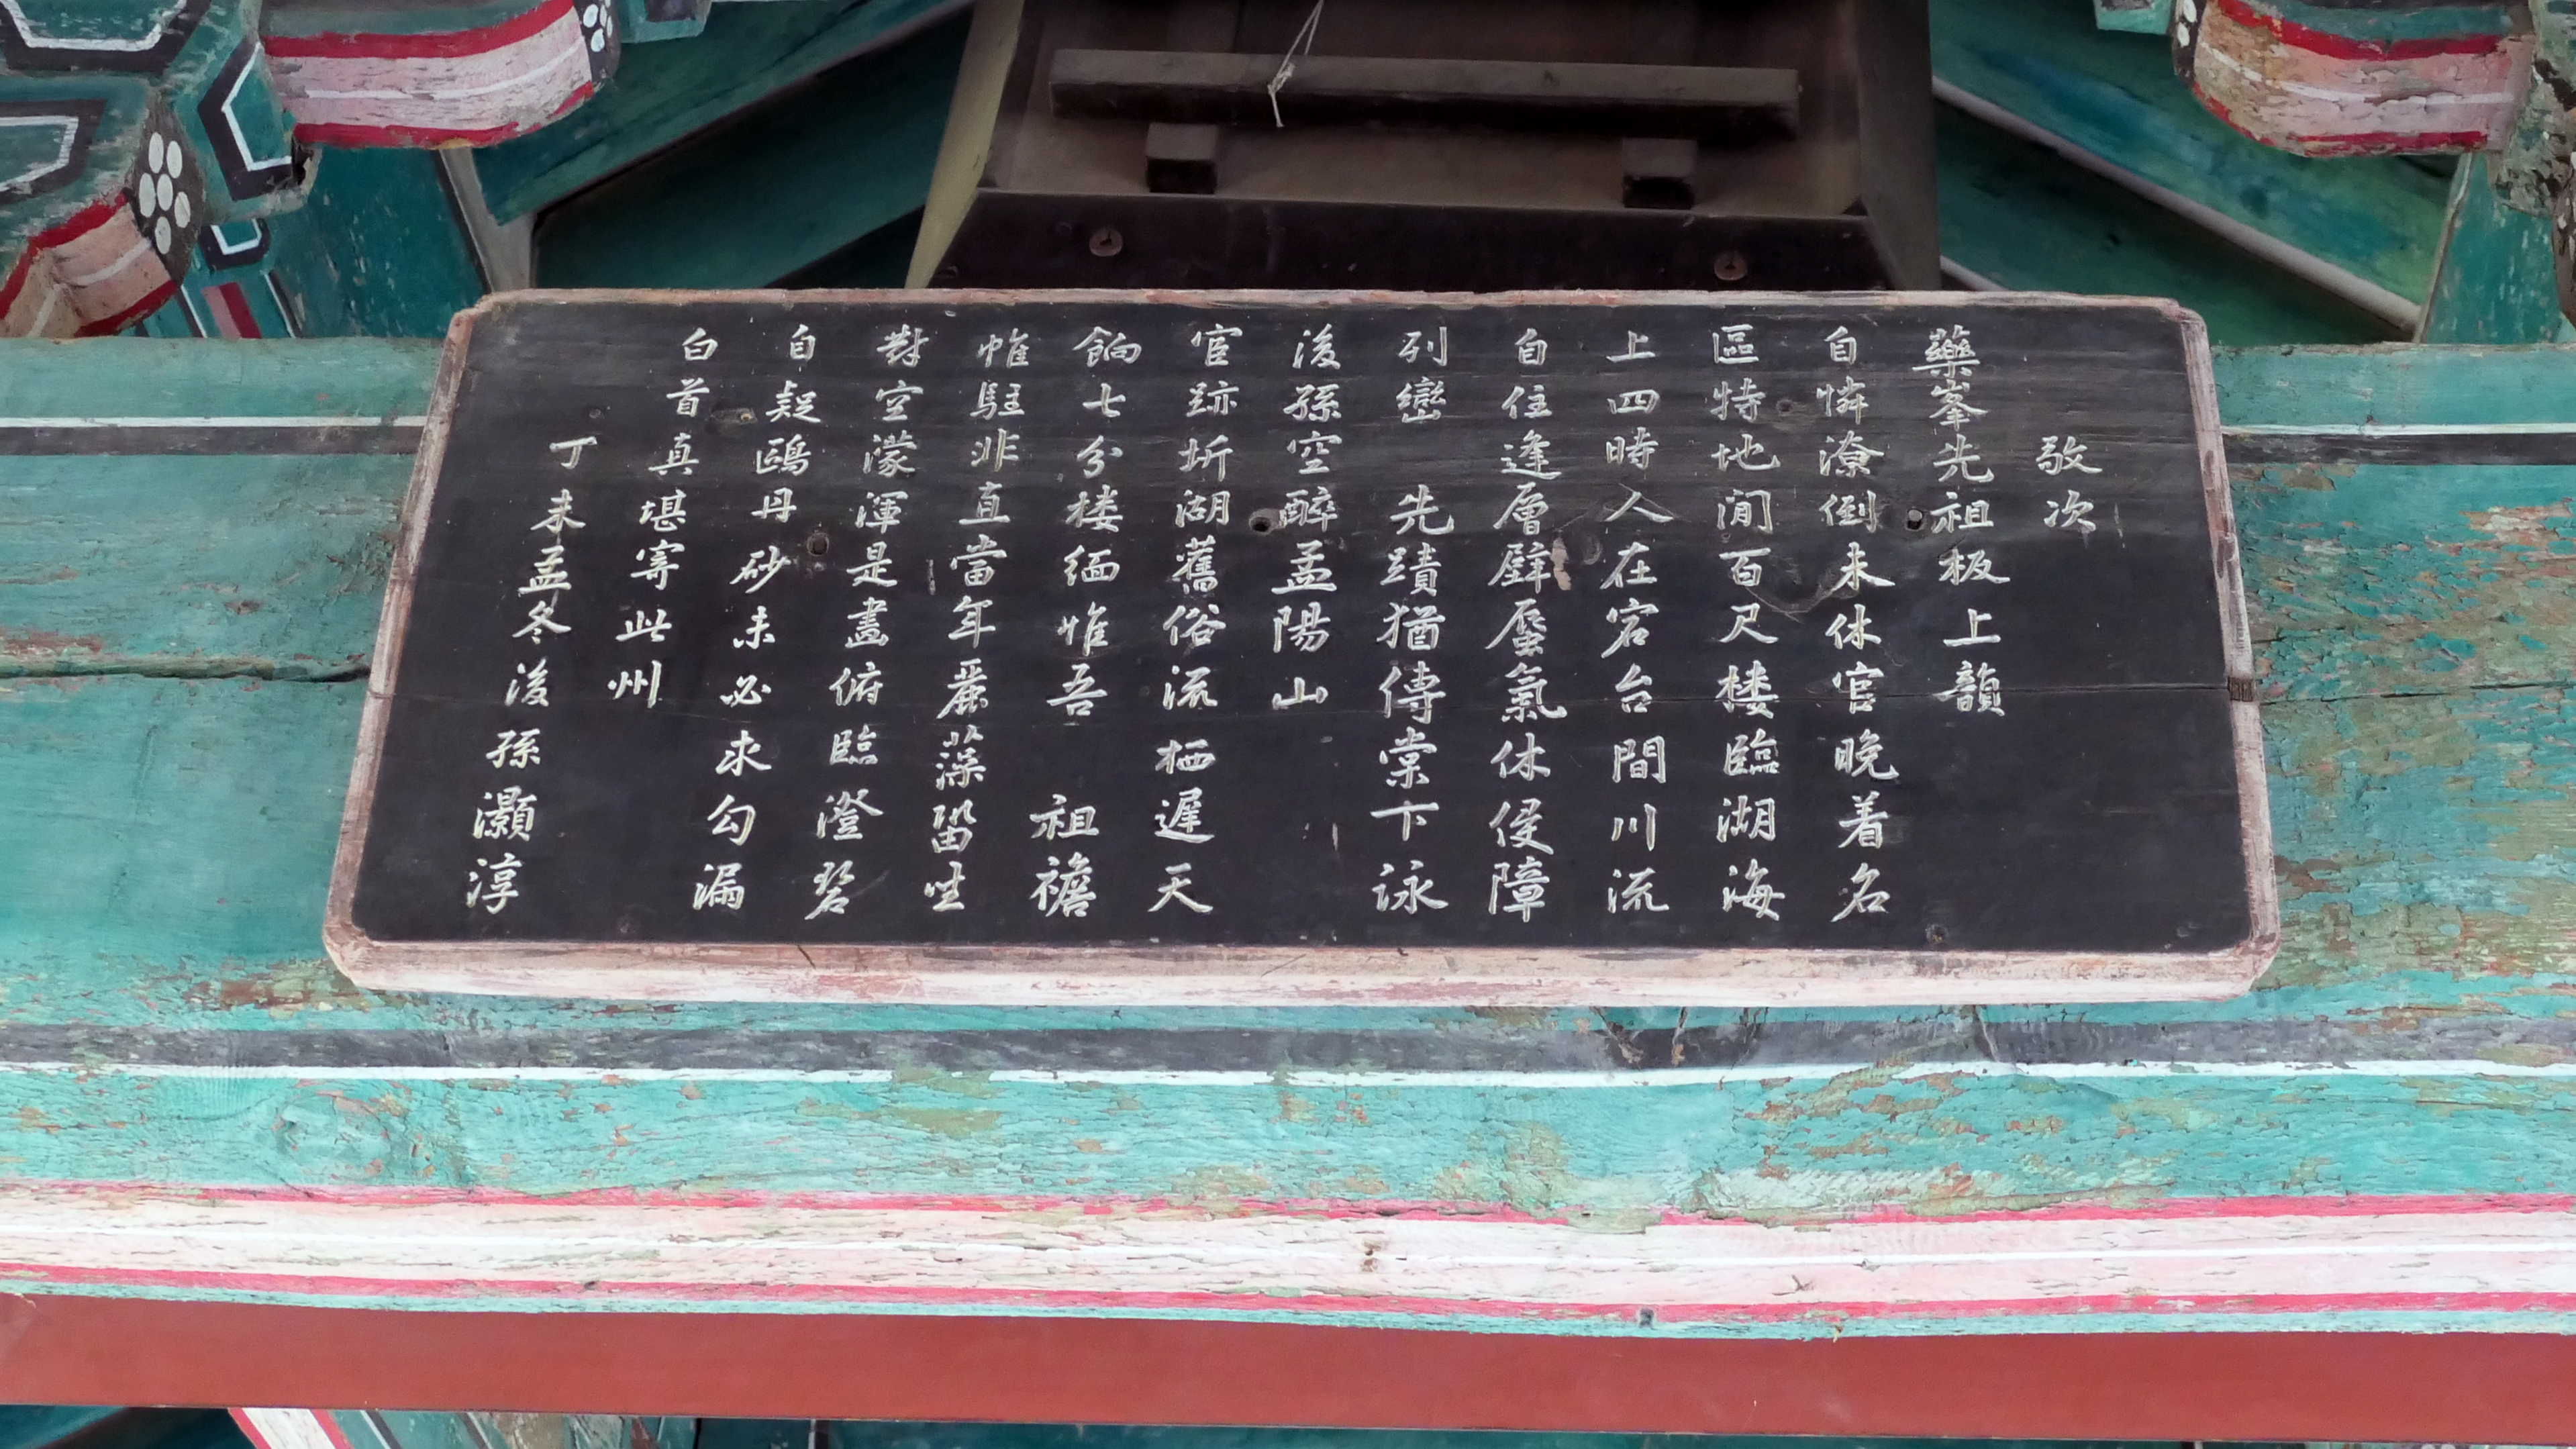 敬次
藥峯先祖板上韻
自憐潦倒未休官晚着名
區特地閒百尺楼臨湖海
上四時人在宕台間川流
自住逢層壁蜃氣休侵障
列巒 先蹟猶傳棠下詠
後孫空醉孟陽山
官跡圻湖舊俗流栖遲天
餉七分楼緬惟吾 祖襜
帷駐非直當年麗藻留坐
對空濛渾是畵俯臨澄碧
自疑鷗丹砂未必求勾漏
白首真堪寄此州
丁未孟冬後孫灝淳